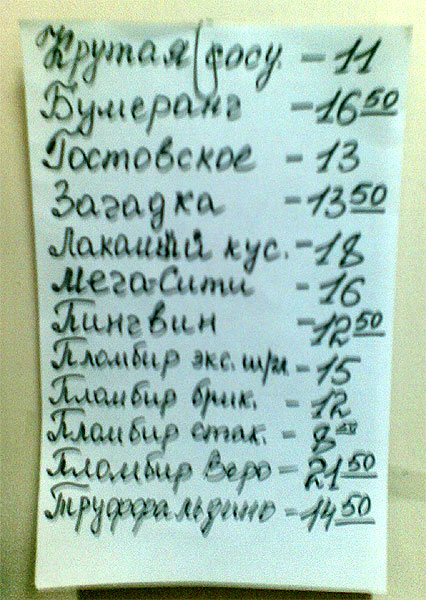 Крутая (сосу. - 11
Бумеранг - 16 50
Гостовское - 13
Загадка - 13 50
Лакомый кус. - 18
Мега-Сити - 16
Пингвин - 12 50
Пломбир экс. - 15
Пломбир брик. - 12
Пломбир стак. - 8 50
Пломбир Веро - 21 50
Труффальдино - 14 50